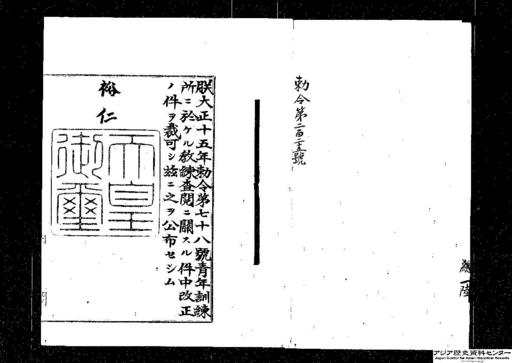 勅令第二百三號
朕大正十五年勅令第七十八號青年訓練
所ニ於ケル敎練査閱ニ關スル件中改正
ノ件ヲ裁可シ玆ニ之ヲ公布セシム
裕仁
天皇
御璽
陸
アジア歴史資料センター
Japan Center for Asian Historical Records